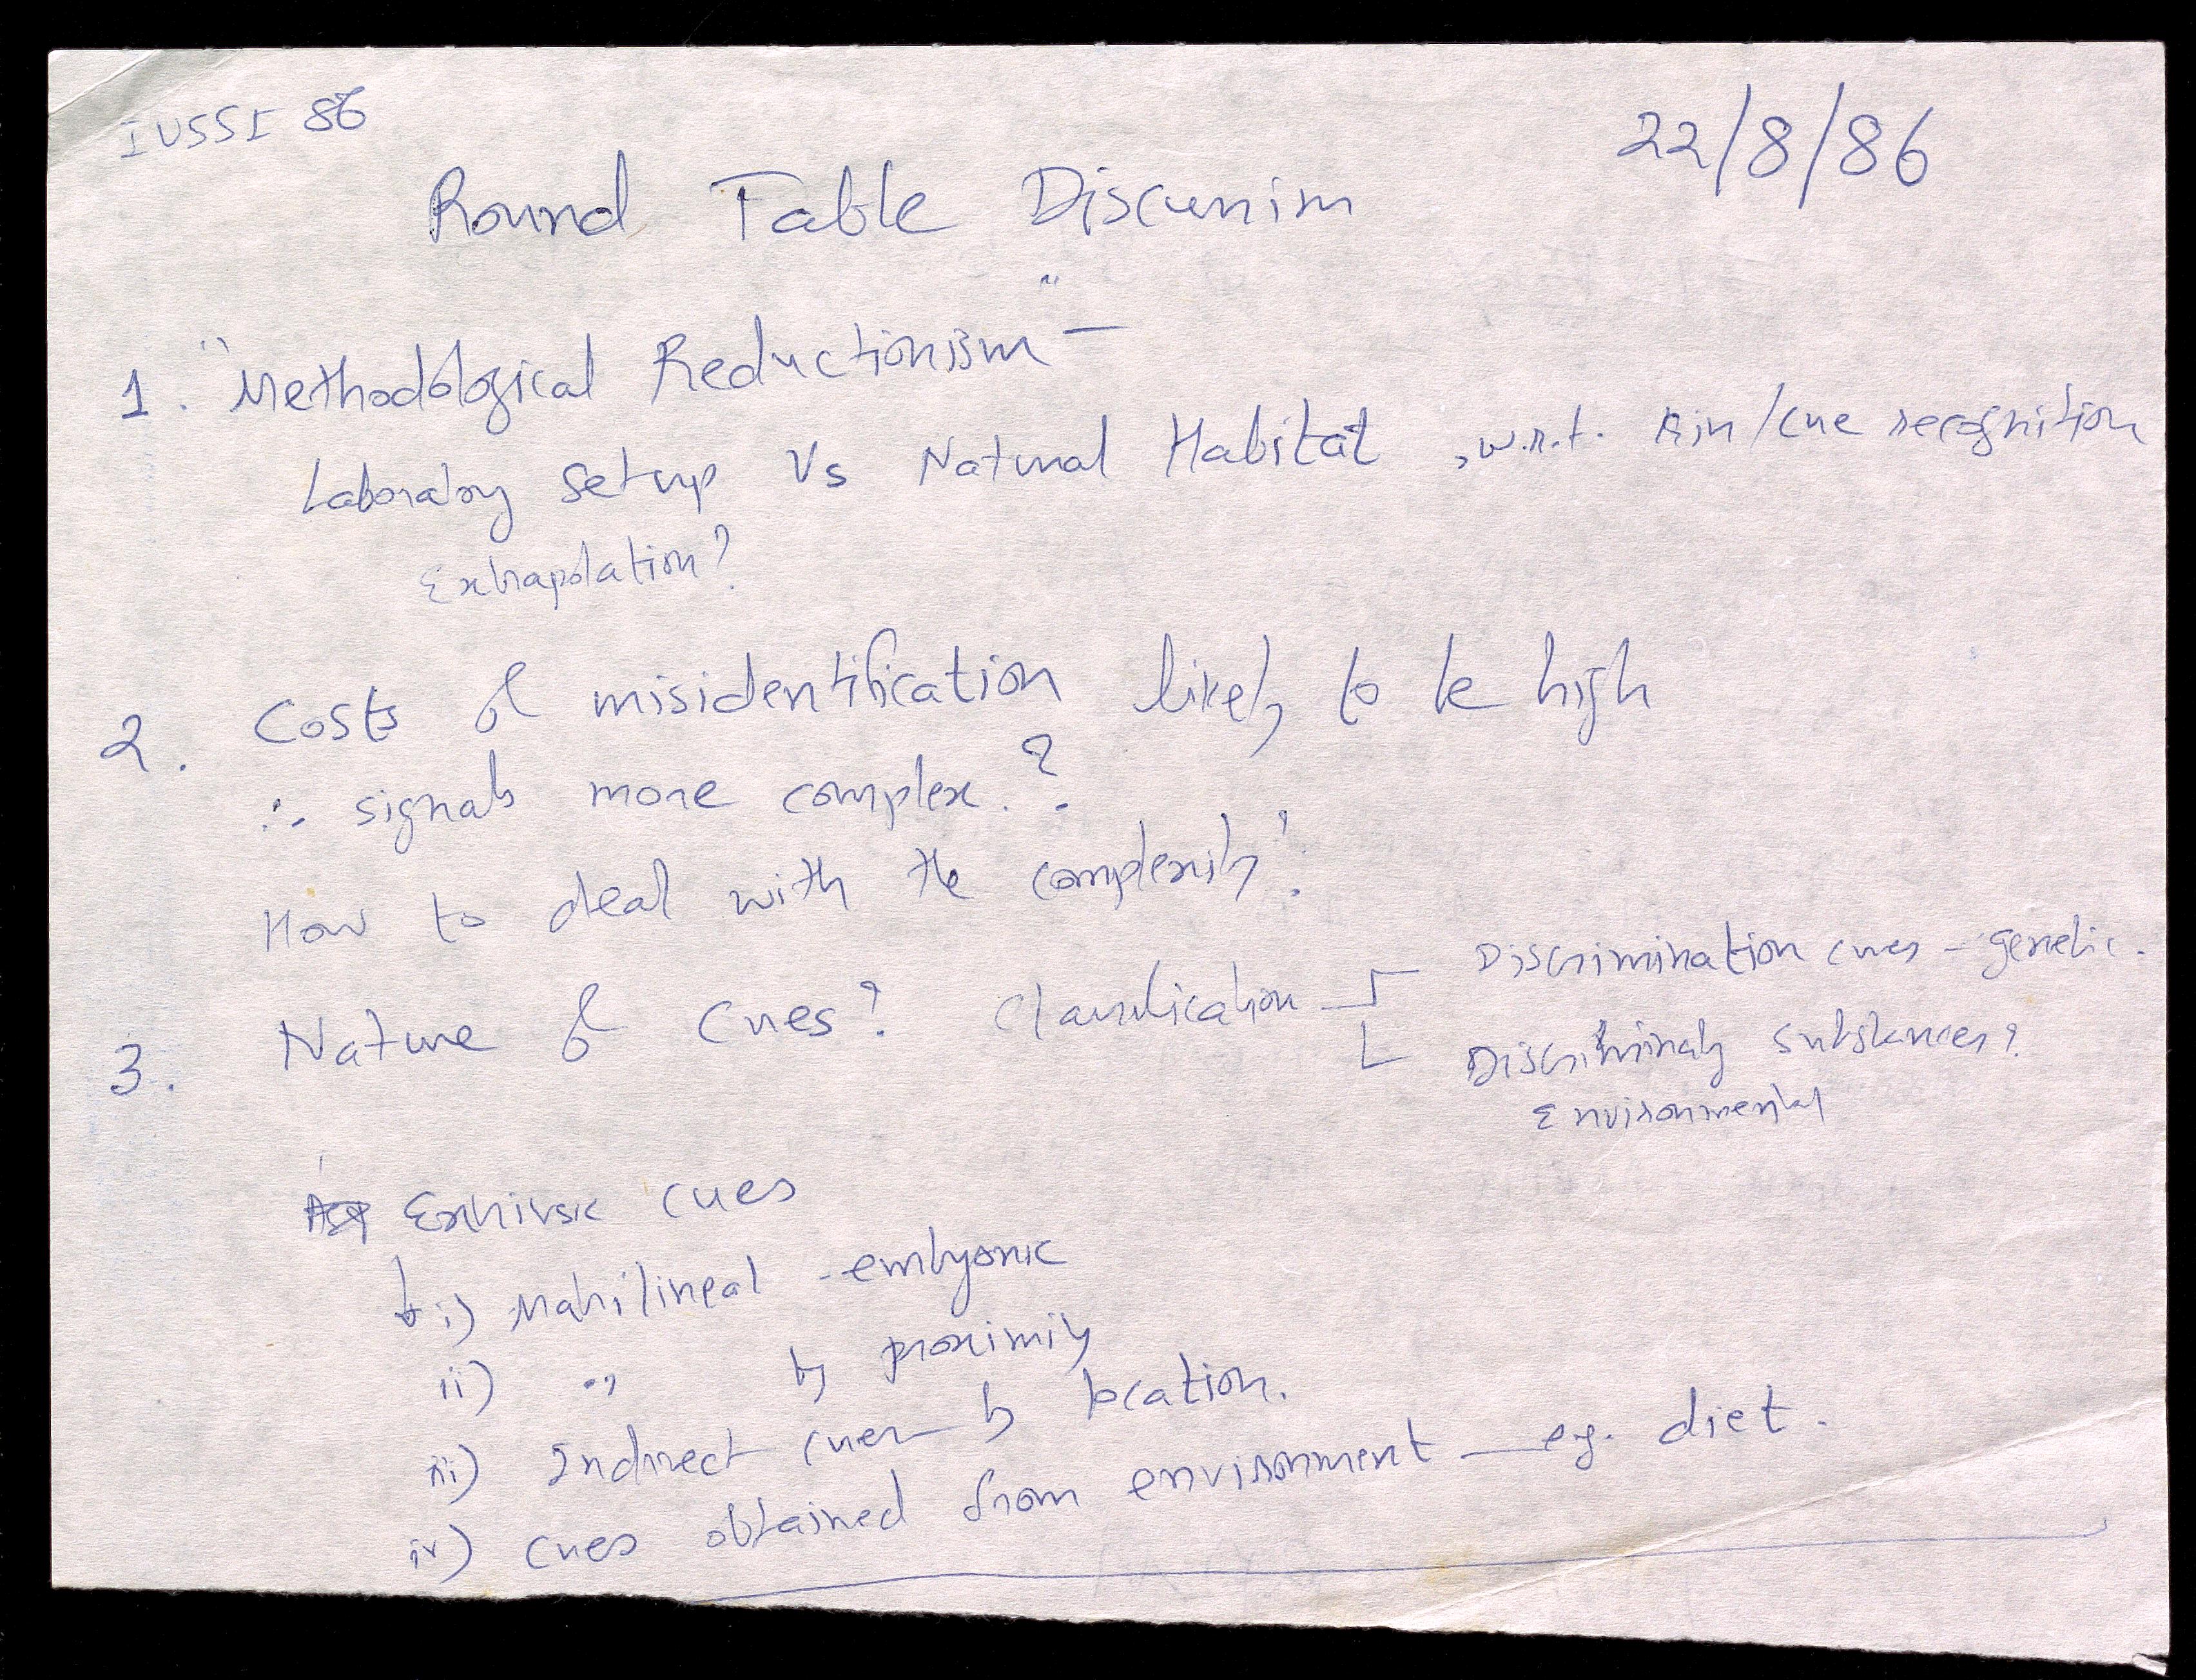 IUSSI 86
22/8/86
Round Table Discussion
1. "Methodological Reductionism" —
Laboratory setup Vs Natural Habitat, w.r.t. kin/cue recognition
Extrapolation?
2. Costs of misidentification likely to be high
∴ signals more complex.?
How to deal with the complexity?
3. Nature of cues? Classification
Discrimination cues - genetic.
Discriminatory substances?
Environmental
Extrinsic cues
i) Matrilineal - embyonic
ii) " by proximity
iii) Indirect cues by location.
iv) cues obtained from environment — eg. diet.